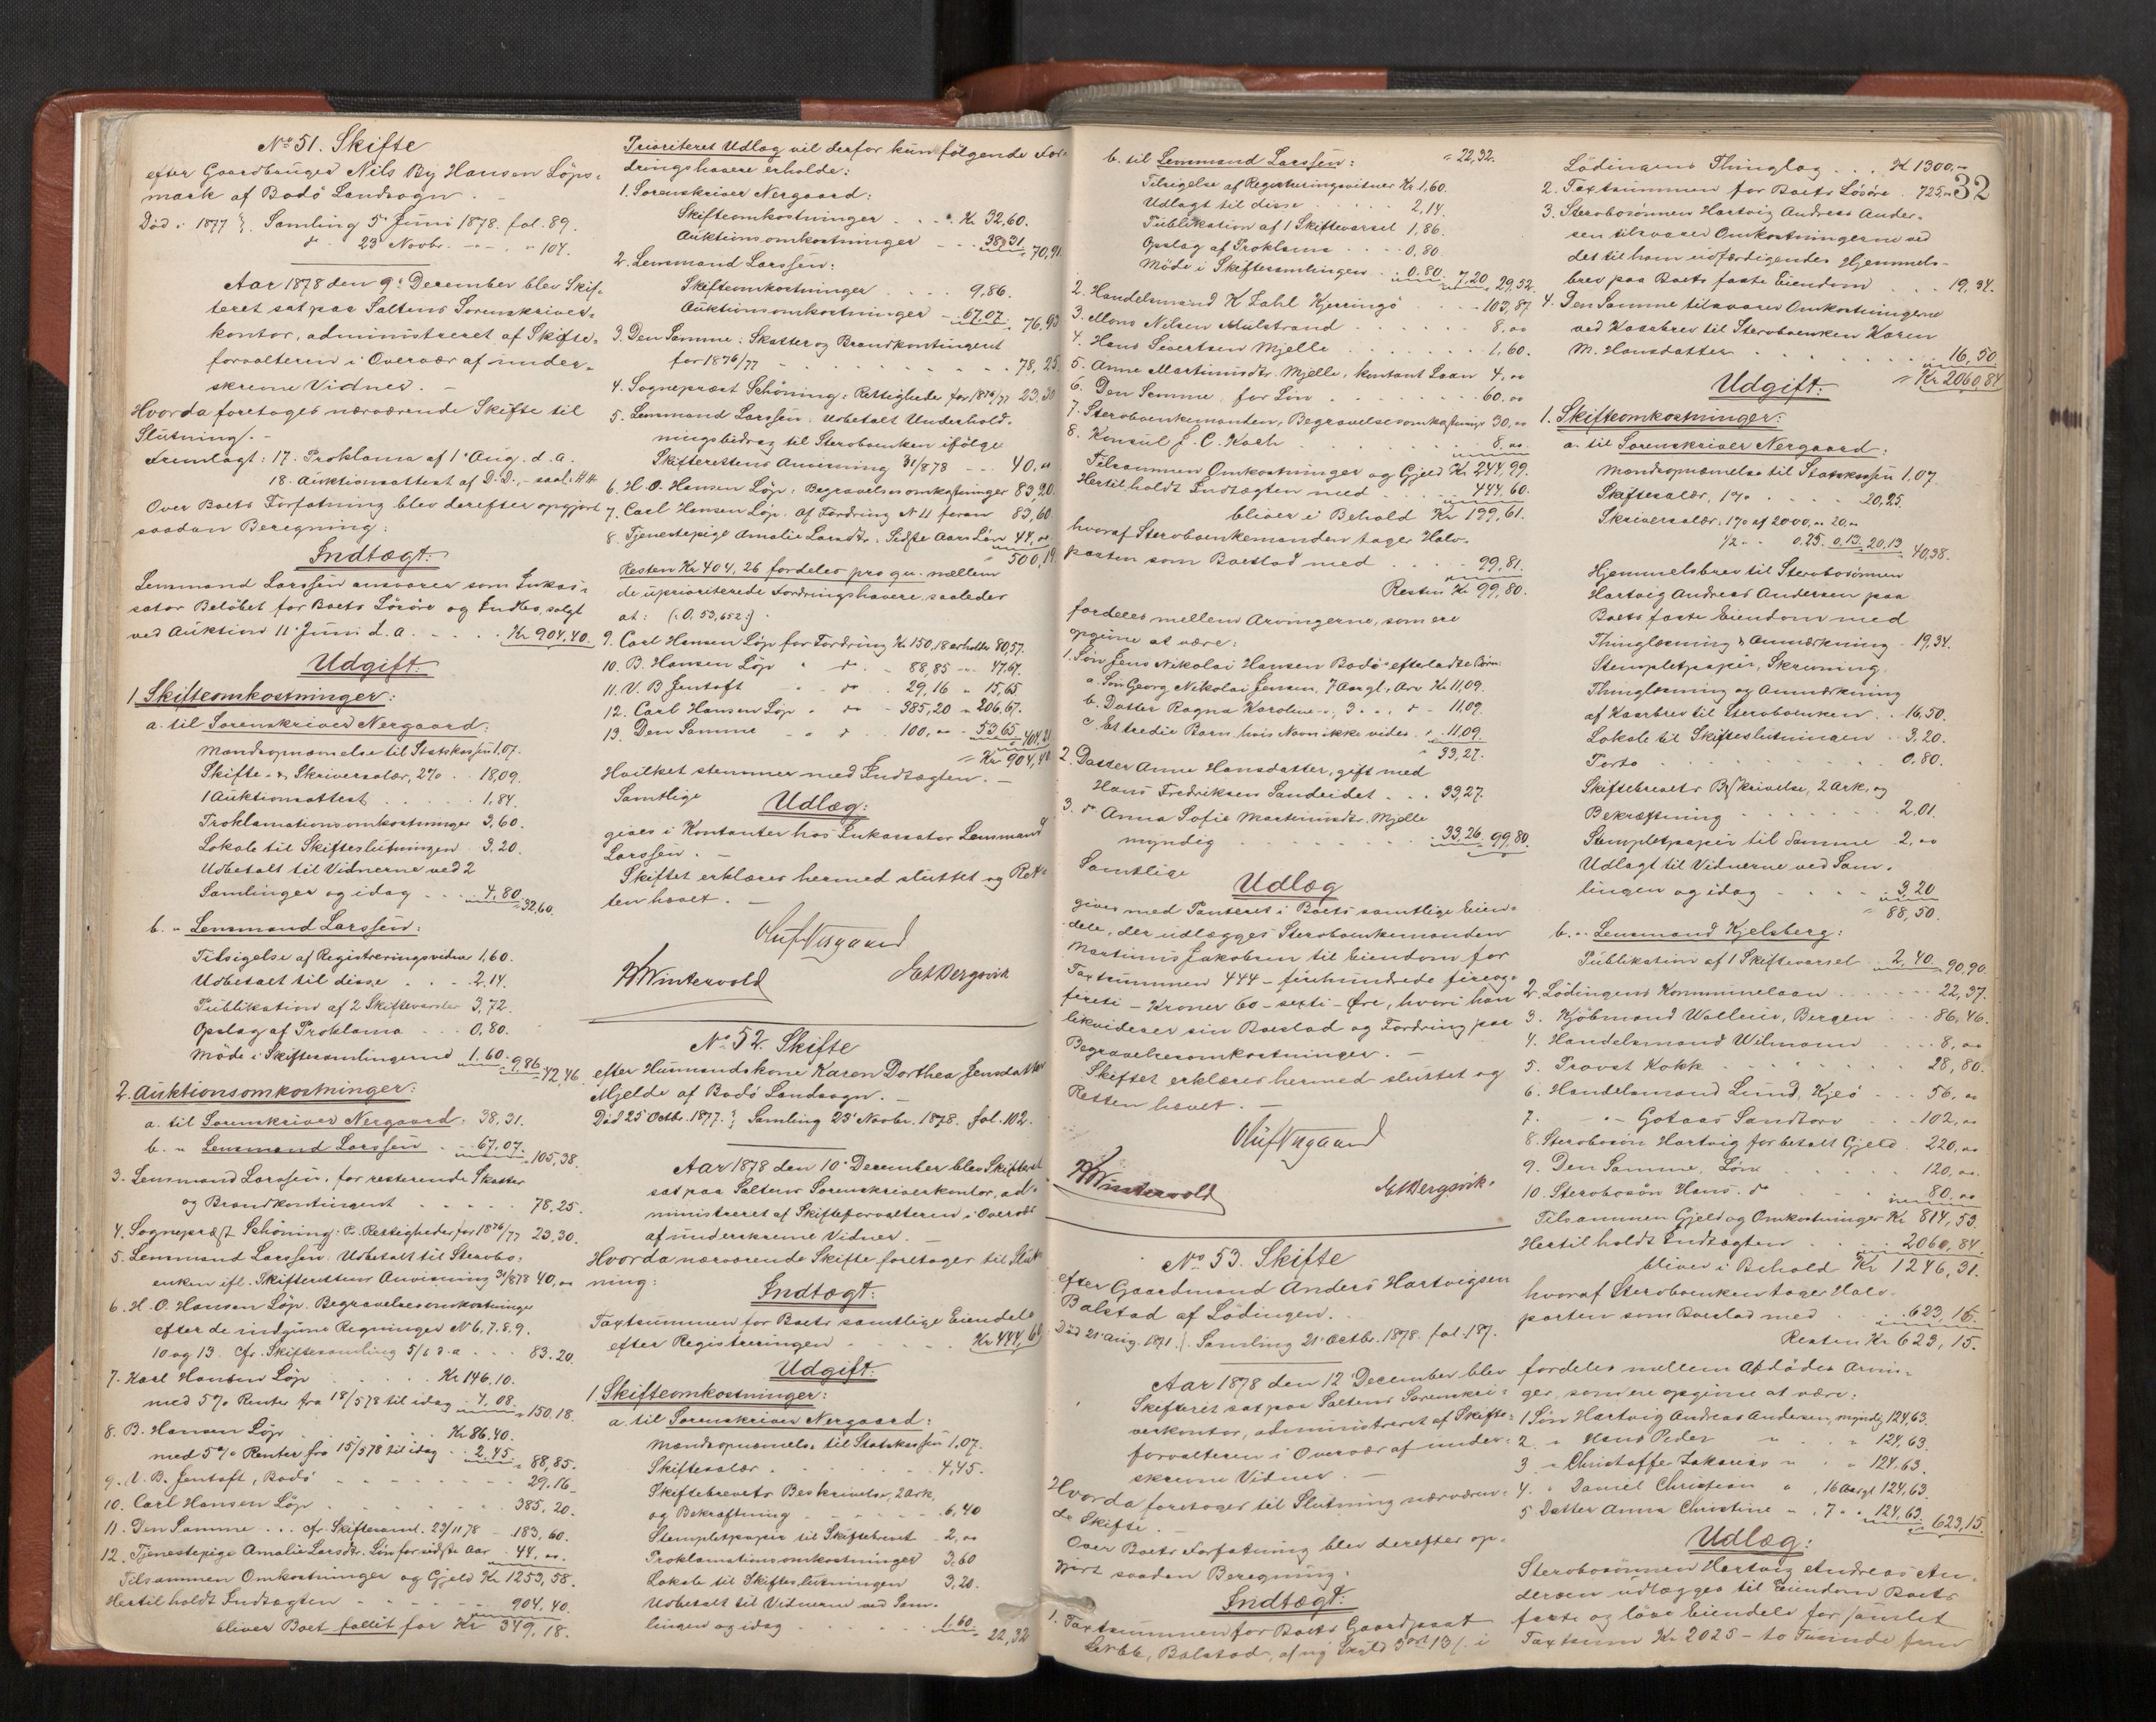 No 51. Skifte
efter Gaardbruger Nils By Hansen Löps-
mark af Bodö Landsogn.
Död: 1877 Samling 5' Juni 1878. fol. 89.
do 23 Novbr. " " 104.
Aar 1878 den 9' December blev Skif-
teret sat paa Saltens Sorenskriver-
kontor, administreret af Skifte-
forvalteren i Overvær af under-
skrevne Vidner. -
Hvorda foretoges nærværende Skifte til
Slutning. -
Fremlagt: 17. Proklama af 1' Aug. d. a.
18. Auktionsattest af D. D.,
Over Boets Forfatning blev derefter opgjort
saadan Beregning:
Indtægt:
Lensmand Larssen ansvarer som Inkas-
sator Belöbet for Boets Lösöre og Indbo, solgt
ved Auktion 11' Juni d. a. Kr 904,40.
Udgift:
1 Skifteomkostninger:
a. til Sorenskriver Nergaard:
Mandsopnævnelse til Statskassen 1,07.
Skifte- & Skriversalær, 2% 18,09.
1 Auktionsattest 1,84.
Proklamationsomkostninger 3,60.
Lokale til Skifteslutningen 3,20.
Udbetalt til Vidnerne ved 2
Samlinger og idag 4,80 32,60.
b. " Lensmand Larssen:
Tilsigelse af Registreringsvidner 1,60.
Udbetalt til disse 2,14.
Publikation af 2 Skiftevarsler 3,72.
Opslag af Proklama 0,80.
Möde i Skiftesamlingerne 1,60 9,86 42,46
2. Auktionsomkostninger:
a. til Sorenskriver Nergaard 38,31.
b. " Lensmand Larssen 67,07 105,38.
3. Lensmand Larssen, for resterende Skatter
og Brandkontingent 78,25.
4. Sognepræst Schöning: Pr. Rettigheder for 1876/77 23,30.
5. Lensmand Larssen. Udbetalt til Sterbo-
enken ifl. Skifterettens Anvisning 31/8 78 40,00
6. H. O. Hansen Löp. Begravelsesomkostninger
efter de indgivne Regninger N 6, 7. 8. 9.
10 og 13. cfr. Skiftesamling 5/6 d. a 83.20.
7. Karl Hansen Löp Kr 146,10.
med 5% Renter fra 18/5 78 til idag 4,08 150,18.
8. B. Hansen Löp Kr 86,40.
med 5% Renter fra 15/5 78 til idag 2,45 88,85.
9. V. B. Jentoft, Bodö 29,16
10. Carl Hansen Löp 385,20.
11. Den Samme cfr. Skiftesaml. 23/11 78 183,60.
12. Tjenestepige Amalie Larsdtr. Lön for sidste Aar 44,00.
Tilsammen Omkostninger og Gjeld Kr 1253,58.
Hertil holdt Indtægten 904,40.
bliver Boet fallit for Kr 349,18.
Prioriteret Udlæg vil derfor kun følgende For-
dringshavere erholde:
1. Sorenskriver Nergaard:
Skifteomkostninger Kr. 32,60.
Auktionsomkostninger 38,31 70,91
2. Lensmand Larssen:
Skifteomkostninger 9,86.
Auktionsomkostninger 67,07 76,93
3. Den Samme: Skatter og Brandkontingent
for 1876/77 78,25.
4. Sognepræst Schöning: Rettigheder for 1876/77 23,30
5. Lensmand Larssen. Udbetalt Underhold-
ningsbidrag til Sterboenken ifölge
Skifterettens Anvisning 31/8 78 40,00
6. H. O. Hansen Löp. Begravelsesomkostninger 83,20.
7. Carl Hansen Löp. Af Fordring N 11 foran 83,60
8. Tjenestepige Amalie Larsdtr. Sidste Aars Lön 44,00
500,19.
Resten Kr 404,26 fordeles pro qu. mellem
de uprioriterede Fordringshavere saaledes
at: (: 0,53,652 :)
9. Carl Hansen Löp for Fordring Kr 150,18 erholder 80,57.
10. B. Hansen Löp " do 88,85 " 47,67.
11. V. B Jentoft " do 29,16 " 15,65.
12. Carl Hansen Löp " do 385,20 " 206,67.
13. Den Samme " do 100,00 53,65 404,21
Kr 904,40
Hvilket stemmer med Indtægten. -
Samtlige
Udlæg:
gives i Kontanter hos Inkassator Lensmand
Larssen. -
Skiftet erklæres hermed sluttet og Ret-
ten hævet. -
Oluf Nergaard
Wintervold
Bergsvik
No 52. Skifte
efter Huusmandskone Karen Dorthea Jensdatter
Mjelde af Bodö Landsogn. -
Död 25' Octbr. 1877. Samling 23' Novbr. 1878. fol. 102.
Aar 1878 den 10' December blev Skifteret
sat paa Saltens Sorenskriverkontor, ad-
ministreret af Skifteforvalteren i Overvær
af underskrevne Vidner. -
Hvorda nærværende Skifte foretoges til Slut-
ning:
Indtægt:
Taxtsummen for Boets samtlige Eiendele
efter Registreringen Kr 444,60
Udgift:
1 Skifteomkostninger:
a. til Sorenskriver Nergaard:
Mandsopnævnelse til Statskassen 1,07.
Skiftesalær 4,45.
Skiftebrevets Beskrivelse, 2 Ark,
og Bekræftning 6,40
Stempletpapir til Skiftebrevet 2,00
Proklamationsomkostninger 3,60
Lokale til Skifteslutningen 3,20.
Udbetalt til Vidnerne ved Sam-
lingen og idag 1,60 22,32
b. til Lensmand Larssen: 22,32.
Tilsigelse af Registreringsvidner Kr 1,60.
Udlagt til disse 2,14.
Publikation af 1 Skiftevarsel 1,86.
Opslag af Proklama 0,80.
Möde i Skiftesamlingen 0,80 7,20 29,52.
2. Handelsmand K Zahl Kjerringö 103,87
3. Mons Nilsen Mulstrand 8,00
4. Hans Sivertsen Mjelle 1,60.
5. Anne Martinusdtr. Mjelle, kontant Laan 4,00
6. Den Samme, for Lön 60,00
7. Sterboenkemanden, Begravelsesomkostninger 30,00
8. Konsul J. C. Koch 8,00.
Tilsammen Omkostninger og Gjeld Kr 244,99.
Hertil holdt Indtægten med 444,60.
bliver i Behold Kr 199,61.
hvoraf Sterboenkemanden tager Halv-
parten som Boeslod med 99,81.
Resten Kr 99,80.
fordeles mellem Arvingerne, som ere
opgivne at være:
1. Søn Jens Nikolai Hansen Bodö's efterladte Børn:
a. Søn Georg Nikolai Jensen, 7 Aar gl., Arv Kr 11,09.
b. Datter Ragna Karoline " , 3 " " , do 11,09.
c. Et tredie Barn, hvis Navn ikke vides " 11,09
33,27.
2. Datter Anne Hansdatter, gift med
Hans Fredriksen Sandeidet 33,27.
3. do Anna Sofie Martinusdtr. Mjelle
myndig 33,26 99,80.
Samtlige
Udlæg
gives med Panteret i Boets samtlige Eien-
dele, der udlægges Sterboenkemanden
Martinus Jakobsen til Eiendom for
Taxtsummen 444 - firehundrede fireog-
fireti - Kroner 60 - sexti - Øre, hvori han
likviderer sin Boeslod og Fordring paa
Begravelsesomkostninger. -
Skiftet erklæres hermed sluttet og
Retten hævet. -
Oluf Nergaard
Wintervold
Bergsvik.
No 53. Skifte
efter Gaardmand Anders Hartvigsen
Balstad af Lödingen.
Död 21' Aug. 1871. Samling 21' Octbr. 1878. fol. 187.
Aar 1878 den 12 December blev
Skifteret sat paa Saltens Sorenskri-
verkontor, administreret af Skifte-
forvalteren i Overvær af under-
skrevne Vidner. -
Hvorda foretoges til Slutning nærværen-
de Skifte. -
Over Boets Forfatning blev derefter op-
gjort saadan Beregning:
Indtægt:
1. Taxtsummen for Boets Gaardpart
Balstad, af ny Skyld 3 ort 13 i
Lödingens Thinglag Kr 1300,-
32
2. Taxtsummen for Boets Lösöre 725,00
3. Sterbosønnen Hartvig Andreas Ander-
sen tilsvarer Omkostningerne ved
det til ham udfærdigendes Hjemmels-
brev paa Boets faste Eiendom 19,34.
4. Den Samme tilsvarer Omkostningerne
ved Kaarbrev til Sterboenken Karen
M. Hansdatter 16,50
Kr 2060,84
Udgift:
1. Skifteomkostninger:
a. til Sorenskriver Nergaard:
Mandsopnævnelse til Statskassen 1,07.
Skiftesalær, 1% 20,25.
Skriversalær: 1% af 2000,00 20,00
1/2 " " 0.25. 0.13 20,13 40,38.
Hjemmelsbrev til Sterbosønnen
Hartvig Andreas Andersen paa
Boets faste Eiendom med
Thinglæsning & Anmærkning 19,34.
Stempletpapir, Skrivning,
Thinglæsning og Anmærkning
af Kaarbrev til Sterboenken 16,50.
Lokale til Skifteslutningen 3,20.
Porto 0,80.
Skiftebrevets Beskrivelse, 2 Ark, og
Bekræftning 2,01.
Stempletpapir til Samme 2,00
Udlagt til Vidnerne ved Sam-
lingen og idag 3,20
88,50.
b. " Lensmand Kjelsberg:
Publikation af 1 Skiftevarsel 2,40 90,90.
2. Lödingens Kommunelaan 22,37.
3. Kjöbmand Wallem, Bergen 86,46.
4. Handelsmand Wilmann 8,00
5. Provst Kokk 28,80.
6. Handelsmand Lund, Kjeö 56,00
7. " Gotaas Sandtorv 102,00
8. Sterbosøn Hartvig for betalt Gjeld 220,00
9. Den Samme, Løn 120,00.
10. Sterbosøn Hans. do 80,00
Tilsammen Gjeld og Omkostninger Kr 814,53.
Hertil holdt Indtægten 2060,84.
bliver i Behold Kr 1246,31.
hvoraf Sterboenken tager Halv-
parten som Boeslod med 623,16.
Resten Kr 623,15.
fordeles mellem Afdødes Arvin-
ger, som ere opgivne at være:
1 Søn Hartvig Andreas Andersen, myndig 124,63.
2. " Hans Peder " " 124,63.
3 " Christoffer Zakarias " " 124,63.
4. " Daniel Christian " , 16 Aar gl 124,63.
5 Datter Anna Christine " , 7 " " 124,63. 623,15.
Udlæg:
Sterbosønnen Hartvig Andreas An-
dersen udlægges til Eiendom Boets
faste og løse Eiendele for samlet
Taxtsum Kr 2025 - to Tusinde fem